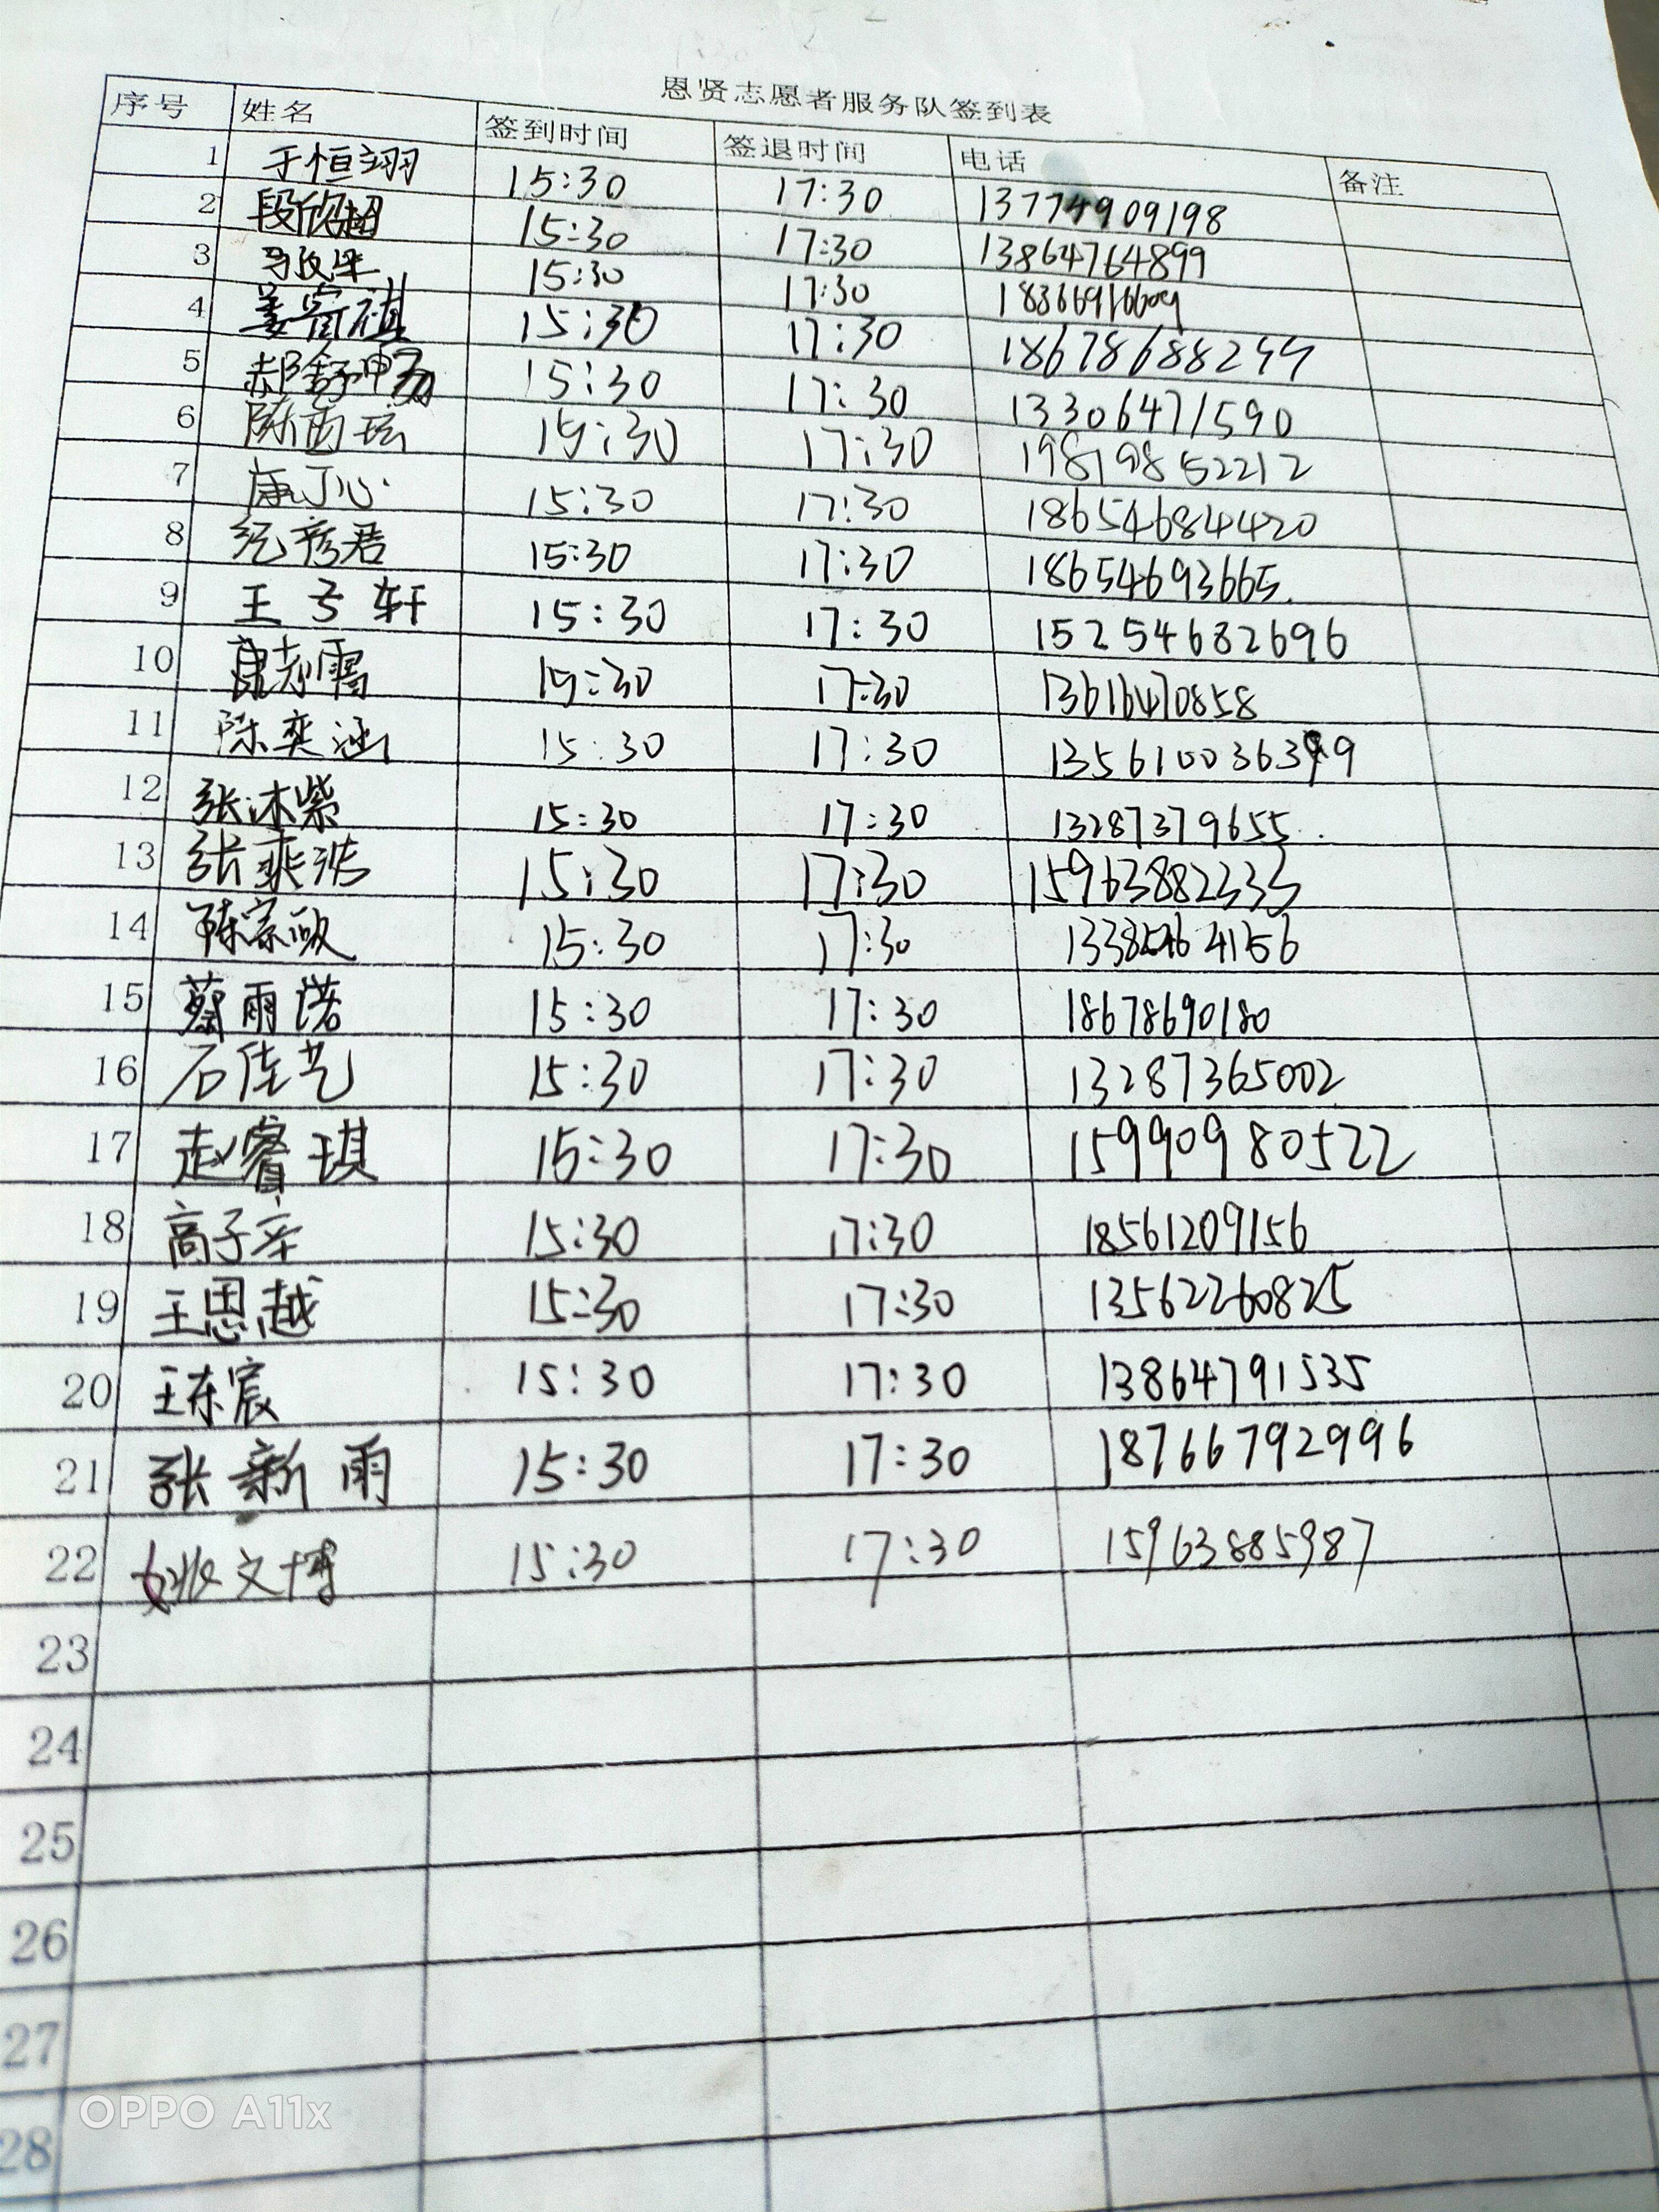 恩贤志愿者服务队签到表
序号 姓名 签到时间 签退时间 电话 备注
1 于恒翊 15:30 17:30
2 段欣超 15:30 17:30 13864764899
3 15:30 17:30
4 姜 祺 15:30 17:30 18678688299
5 郝舒畅 15:30 17:30 13306471590
6 陈雨 15:30 17:30 19819852212
7 康丁心 15:30 17:30 18654684420
8 纪彦君 15:30 17:30 18654693665
9 王子轩 15:30 17:30 15254682696
10 15:30 17:30 13616470858
11 陈奕涵 15:30 17:30
12 张沐紫 15:30 17:30 13287379655
13 张奕浩 15:30 17:30 15963882333
14 陈家 15:30 17:30
15 蔡雨诺 15:30 17:30 18678690180
16 石佳艺 15:30 17:30 13287365002
17 赵睿琪 15:30 17:30 15990980522
18 高子 15:30 17:30 18561209156
19 王思越 15:30 17:30 13562260825
20 王东宸 15:30 17:30 13864791535
21 张新雨 15:30 17:30 18766792996
22 姚文博 15:30 17:30 15963885987
23
24
25
26
27
28
OPPO A11x